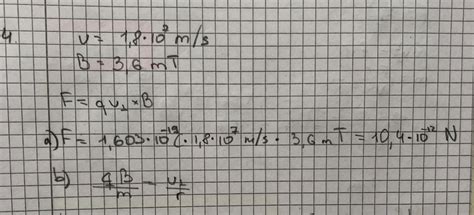 4.
v = 1,8·10⁷ m/s
B = 3,6 mT
F = qv⊥×B
a) F = 1,603·10⁻¹⁹C·1,8·10⁷ m/s · 3,6 mT = 10,4·10⁻¹² N
b) qB/m = v⊥/r